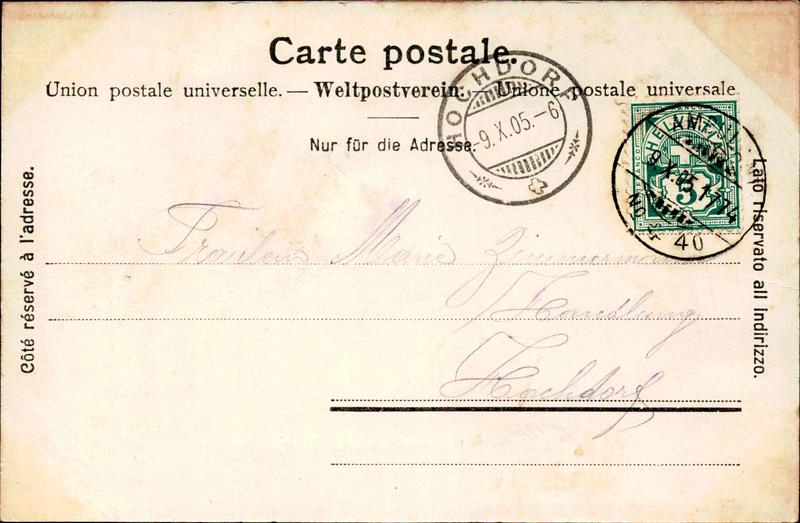 Carte postale.
Union postale universelle. — Weltpostverein. — Unione postale universale
Nur für die Adresse.
HOCHDORF
-9.X.05.-6
9.X.05
40
5
Côté réservé à l'adresse.
Lato riservato all indirizzo.
Fräulein Marie Zimmermann
Handlung
Hochdorf